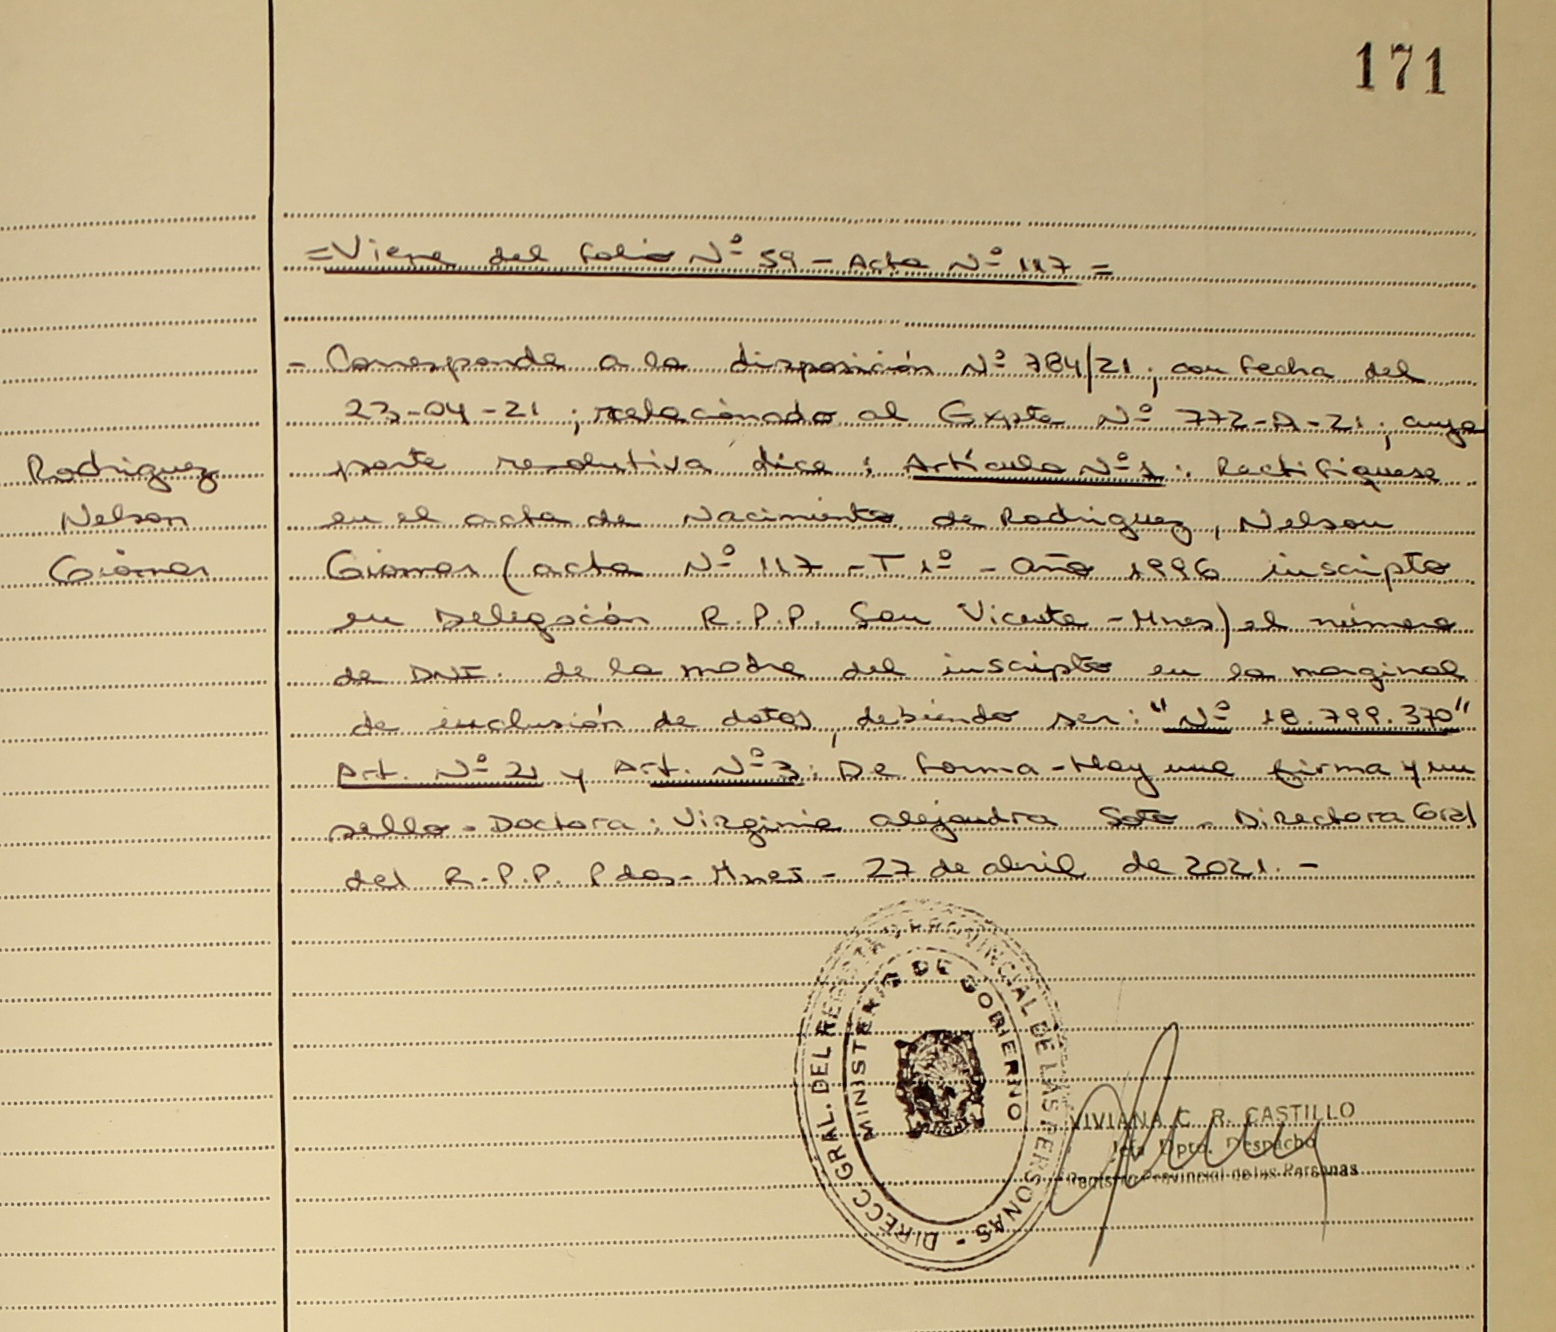 171
=Viene del folio Nº 59 - Acta Nº 117 =
- Corresponde a la disposición Nº 784/21; con fecha del
23-04-21; relacionado al Expte Nº 772-D-21; cuya
parte resolutiva dice: Artículo Nº1: Rectifiquese
Rodriguez
en el acta de Nacimiento de Rodriguez, Nelson
Nelson
Giomar (acta Nº 117 - T 1º - Año 1996 inscripto
Giomar
en Delegación R.P.P. San Vicente - Mnes) el número
de DNI. de la madre del inscripto en la marginal
de inclusión de datos, debiendo ser: "Nº 18.799.370"
Art. Nº 21 y Art. Nº 3: De forma - Hay una firma y un
sello - Doctora: Virginia alejandra Soto - Directora Gral
del R.P.P. Pdas - Mnes - 27 de abril de 2021. -
DIRECC. GRAL. DEL REGISTRO PROVINCIAL DE LAS PERSONAS -
MINISTERIO DE GOBIERNO
VIVIANA C. R. CASTILLO
Jefa Dpto. Despacho
Registro Provincial de las Personas